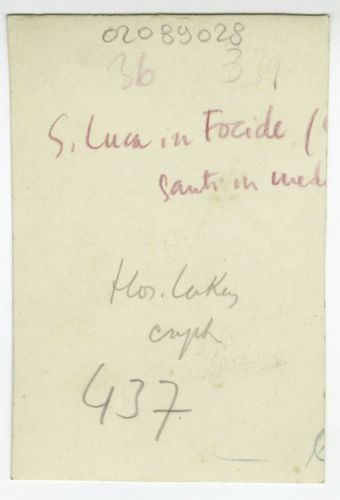 02089028
36 339
S. Luca in Focide (
santi in med
Hos. Lukas
crypt
437